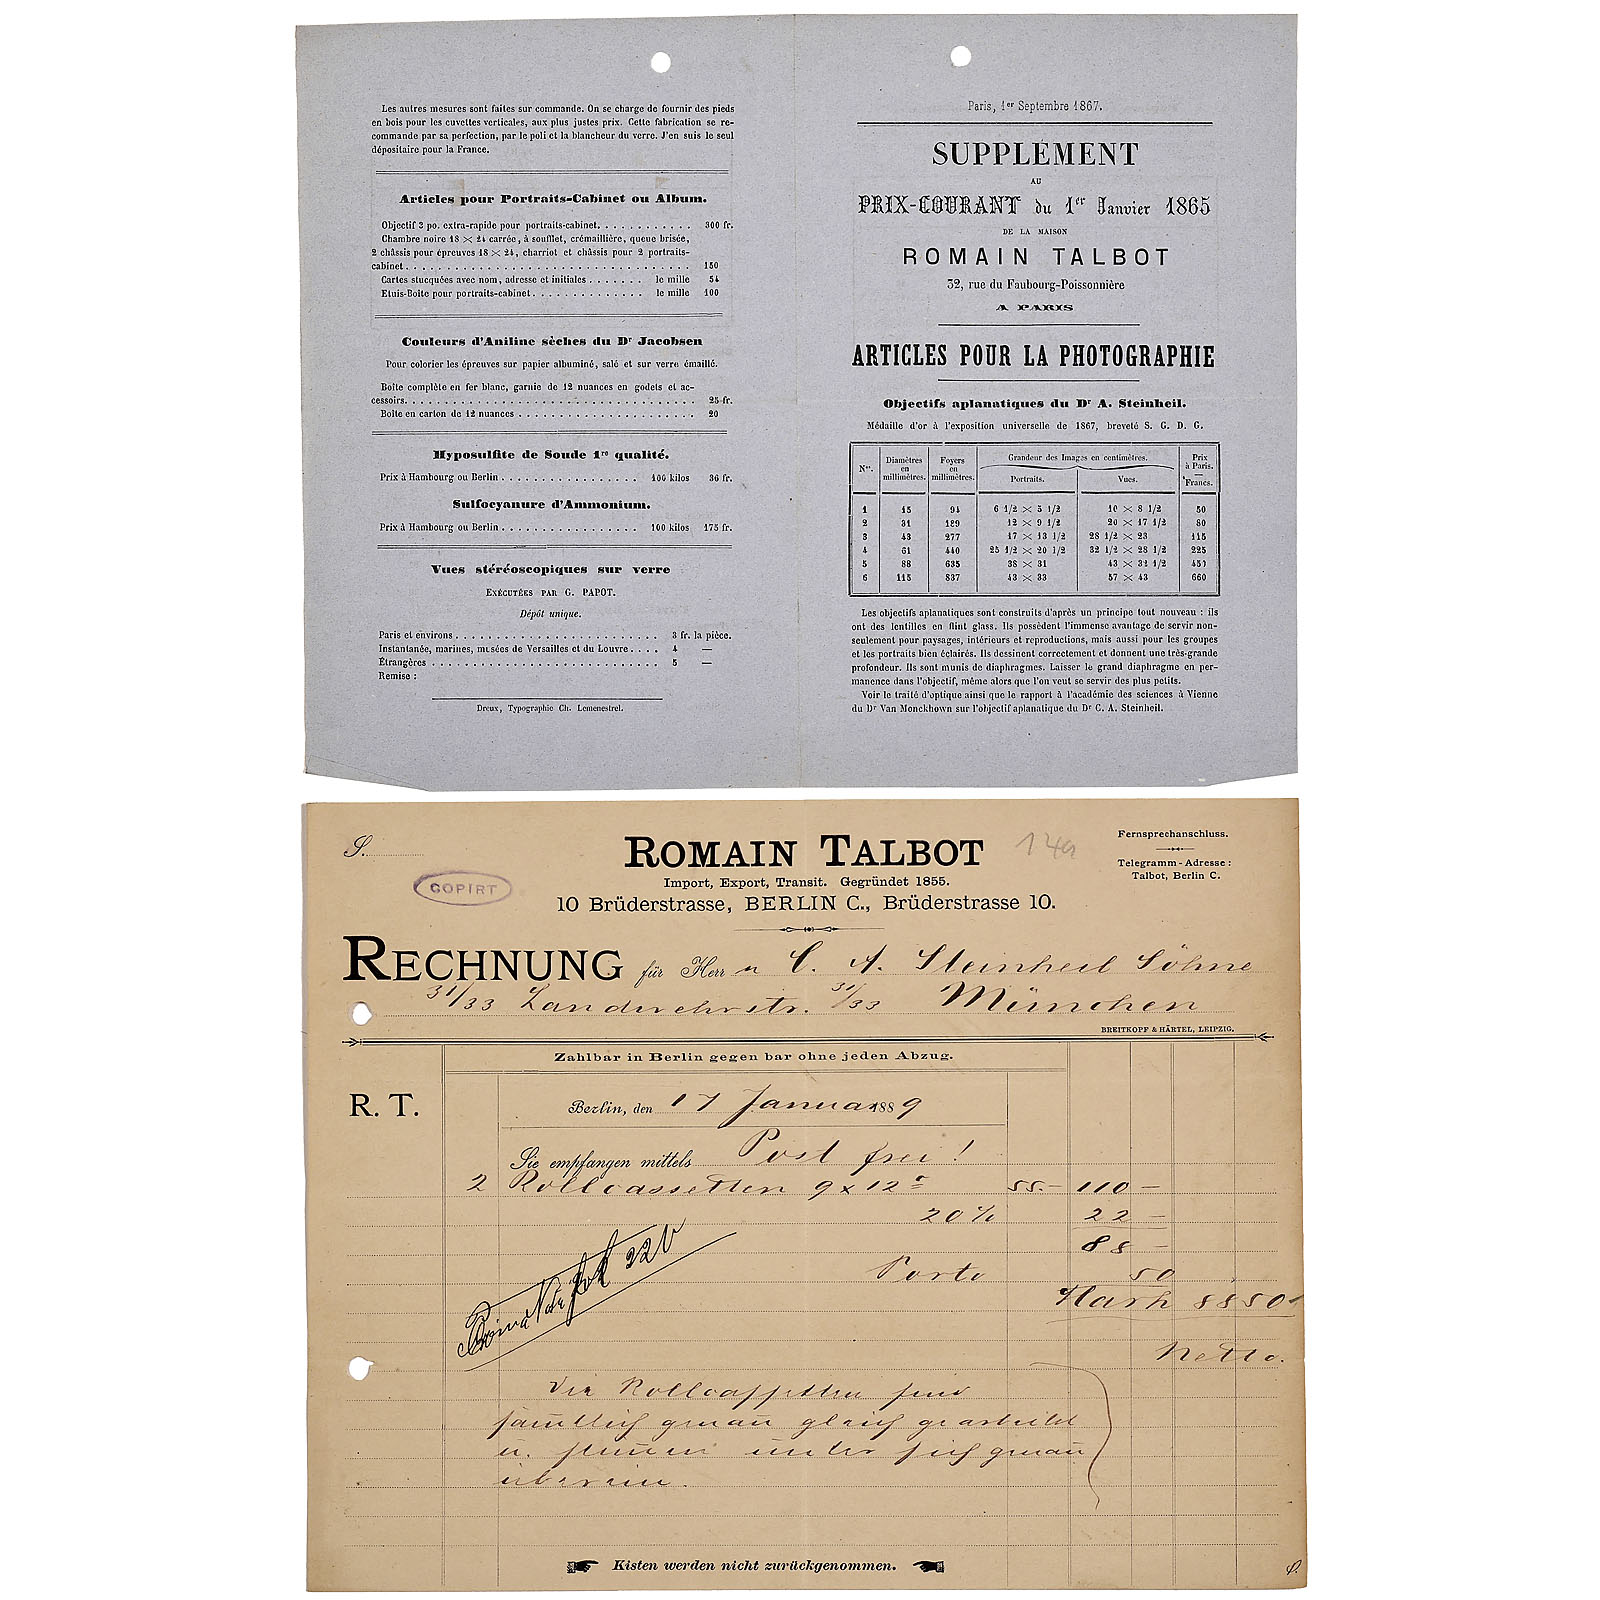 Les autres mesures sont faites sur commande. On se charge de fournir des pieds
en bois pour les cuvettes verticales, aux plus justes prix. Cette fabrication se re-
commande par sa perfection, par le poli et la blancheur du verre. J'en suis le seul
dépositaire pour la France.
Articles pour Portraits-Cabinet ou Album.
Objectif 3 po. extra-rapide pour portraits-cabinet. . . . . . . . . . . . 300 fr.
Chambre noire 18 × 24 carrée, à soufflet, crémaillière, queue brisée,
2 châssis pour épreuves 18 × 24, charriot et châssis pour 2 portraits-
cabinet. . . . . . . . . . . . . . . . . . . . . . . . . . 150
Cartes stucquées avec nom, adresse et initiales . . . . . . . le mille 54
Etuis-Boîte pour portraits-cabinet . . . . . . . . . . . . . le mille 100
Couleurs d'Aniline sèches du Dr Jacobsen
Pour colorier les épreuves sur papier albuminé, salé et sur verre émaillé.
Boîte complète en fer blanc, garnie de 12 nuances en godets et ac-
cessoirs. . . . . . . . . . . . . . . . . . . . . . . . . . 25 fr.
Boîte en carton de 12 nuances . . . . . . . . . . . . . . . . . 20
Hyposulfite de Soude 1re qualité.
Prix à Hambourg ou Berlin . . . . . . . . . . . . . . . 100 kilos 36 fr.
Sulfocyanure d'Ammonium.
Prix à Hambourg ou Berlin . . . . . . . . . . . . . . . 100 kilos 175 fr.
Vues stéréoscopiques sur verre
EXÉCUTÉES PAR G. PAPOT.
Dépôt unique.
Paris et environs . . . . . . . . . . . . . . . . . . . . 3 fr. la pièce.
Instantanée, marines, musées de Versailles et du Louvre. . . . 4 —
Étrangères . . . . . . . . . . . . . . . . . . . . . . . 5 —
Remise :
Dreux, Typographie Ch. Lemenestrel.
Paris, 1er Septembre 1867.
SUPPLÉMENT
AU
PRIX-COURANT du 1er Janvier 1865
DE LA MAISON
ROMAIN TALBOT
32, rue du Faubourg-Poissonnière
A PARIS
ARTICLES POUR LA PHOTOGRAPHIE
Objectifs aplanatiques du Dr A. Steinheil.
Médaille d'or à l'exposition universelle de 1867, breveté S. G. D. G.
Nos. Diamètres en millimètres. Foyers en millimètres. Grandeur des Images en centimètres. Prix à Paris. Francs.
Portraits. Vues.
1 15 94 6 1/2 × 5 1/2 10 × 8 1/2 50
2 31 189 12 × 9 1/2 20 × 17 1/2 80
3 43 277 17 × 13 1/2 28 1/2 × 23 115
4 61 440 25 1/2 × 20 1/2 32 1/2 × 28 1/2 225
5 88 635 38 × 31 43 × 31 1/2 450
6 115 837 43 × 33 57 × 43 660
Les objectifs aplanatiques sont construits d'après un principe tout nouveau : ils
ont des lentilles en flint glass. Ils possèdent l'immense avantage de servir non-
seulement pour paysages, intérieurs et reproductions, mais aussi pour les groupes
et les portraits bien éclairés. Ils dessinent correctement et donnent une très-grande
profondeur. Ils sont munis de diaphragmes. Laisser le grand diaphragme en per-
manence dans l'objectif, même alors que l'on veut se servir des plus petits.
Voir le traité d'optique ainsi que le rapport à l'académie des sciences à Vienne
du Dr Van Monckhown sur l'objectif aplanatique du Dr C. A. Steinheil.
S.
COPIRT
ROMAIN TALBOT
14a
Import, Export, Transit. Gegründet 1855.
10 Brüderstrasse, BERLIN C., Brüderstrasse 10.
Fernsprechanschluss.
Telegramm-Adresse:
Talbot, Berlin C.
RECHNUNG für Herrn C. A. Steinheil Söhne
31/33 Landwehrstr. 31/33 München
BREITKOPF & HÄRTEL, LEIPZIG.
Zahlbar in Berlin gegen bar ohne jeden Abzug.
R. T.
Berlin, den 17 Januar 1889
Sie empfangen mittels Post frei!
2 Rollcassetten 9 x 12 55.- 110 -
20% 22 -
88 -
Porto 50
Mark 88 50
Netto.
Prima Nota 220
Die Rollcassetten sind
sämtlich genau gleich gearbeitet
u. stimmen unter sich genau
überein.
Kisten werden nicht zurückgenommen.